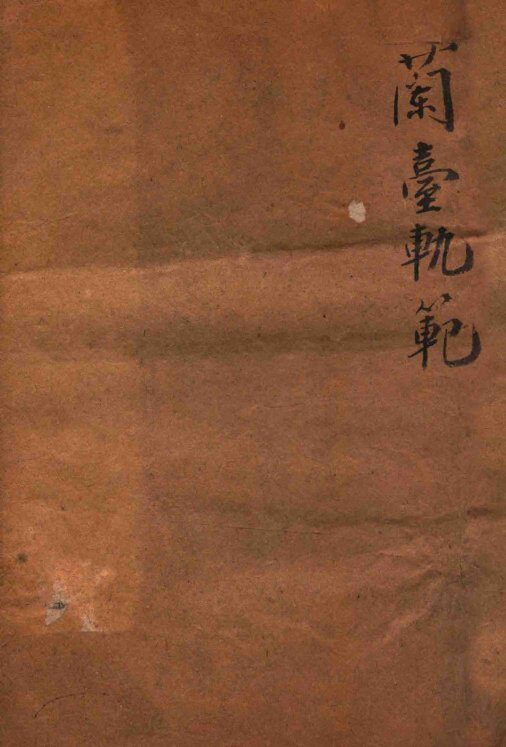 蘭臺軌範